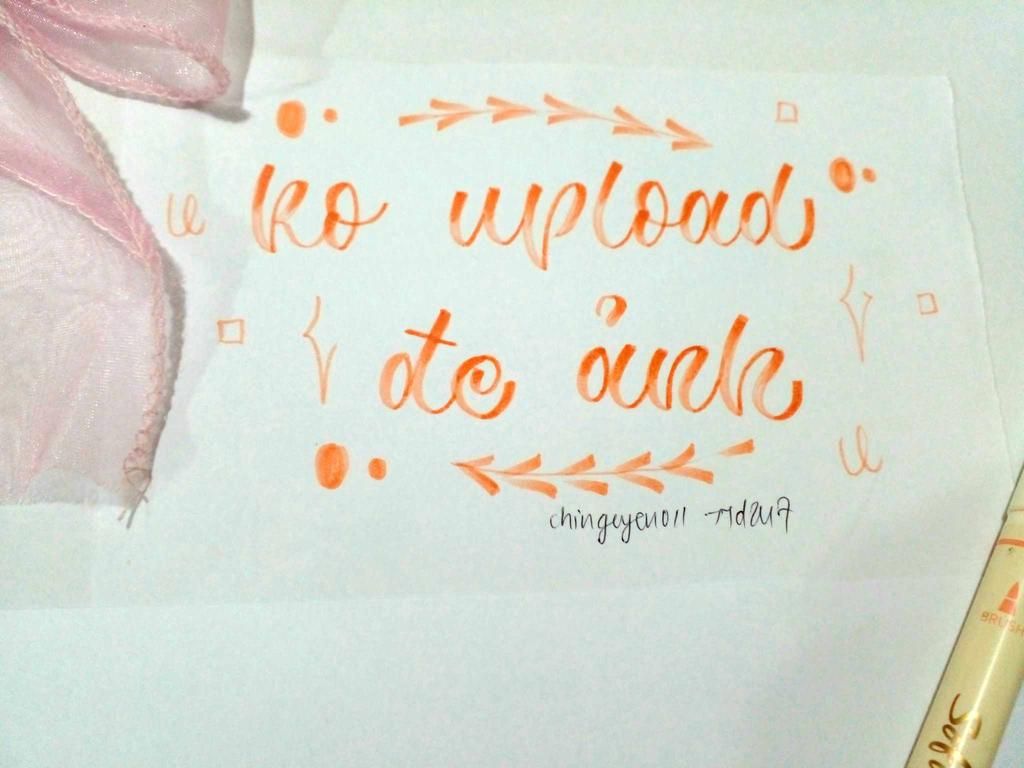 ko upload
đc ảnh
chinguyen011
BRUSH